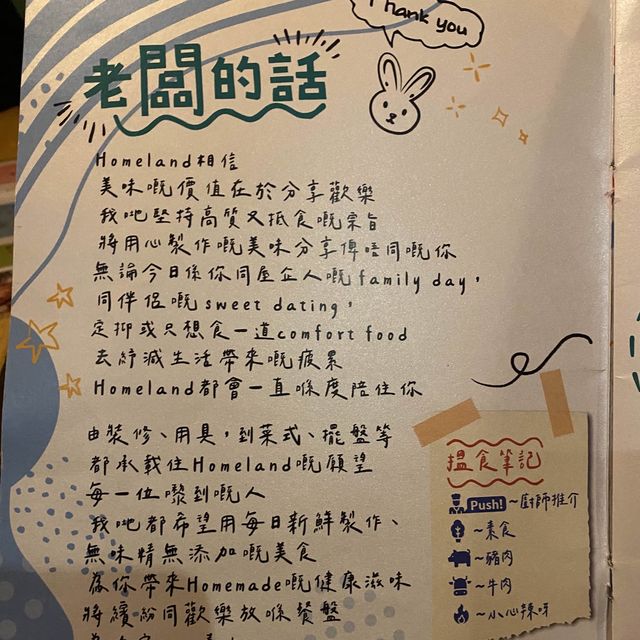 Thank you
老闆的話
Homeland相信
美味嘅價值在於分享歡樂
我哋堅持高質又抵食嘅宗旨
將用心製作嘅美味分享俾唔同嘅你
無論今日係你同屋企人嘅family day，
同伴侶嘅sweet dating，
定抑或只想食一道comfort food
去紓減生活帶來嘅疲累
Homeland都會一直喺度陪住你
由裝修、用具，到菜式、擺盤等
都承載住Homeland嘅願望
每一位嚟到嘅人
我哋都希望用每日新鮮製作、
無味精無添加嘅美食
為你帶來Homemade嘅健康滋味
將繽紛同歡樂放喺餐盤
搵食筆記
Push!～廚師推介
～素食
～豬肉
～牛肉
～小心辣呀